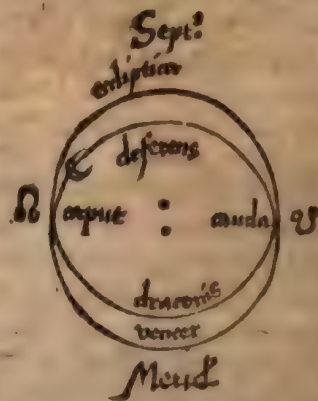 Sept:
ecliptica
deferens
☊ caput cauda ☋
draconis
venter
Merid